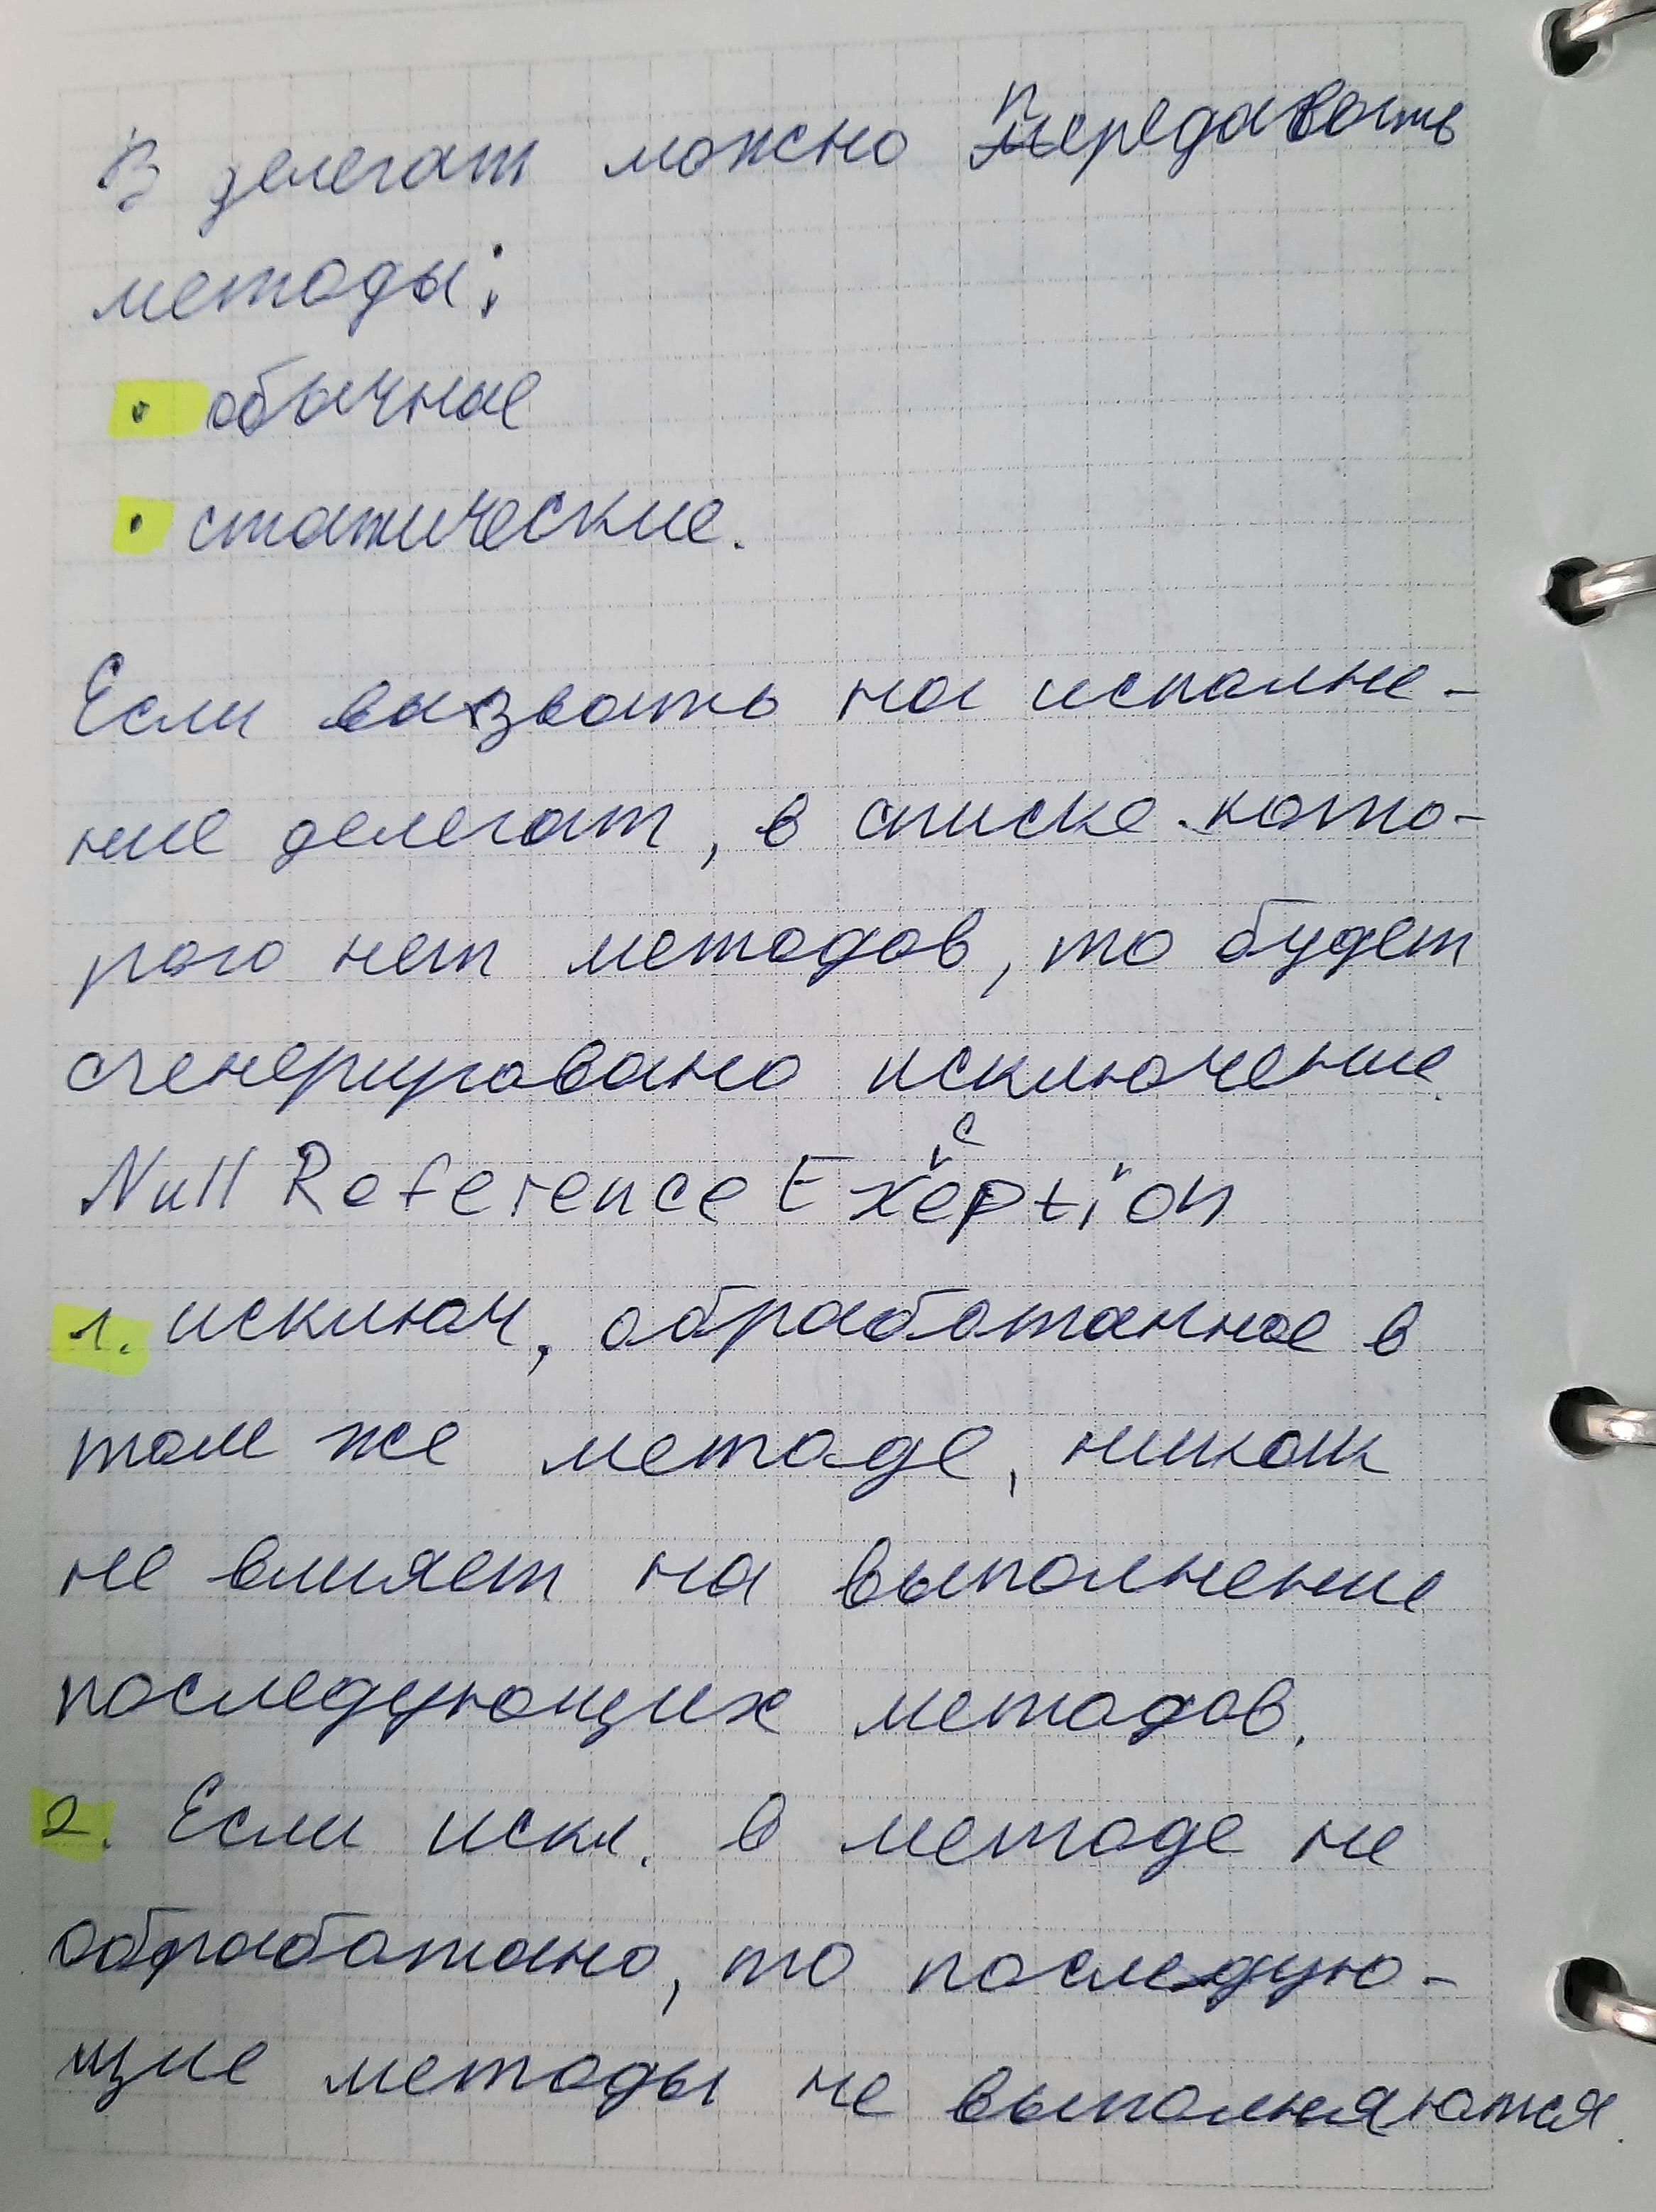 В делегат можно передавать
методы:
• обычные
• статические.
Если вызвать на исполне-
ние делегат, в списке кото-
рого нет методов, то будет
сгенерировано исключение
Null Reference Exception
1. исключ, обработанное в
том же методе, никак
не влияет на выполнение
последующих методов.
2. Если искл. в методе не
обработано, то последую-
щие методы не выполняются.